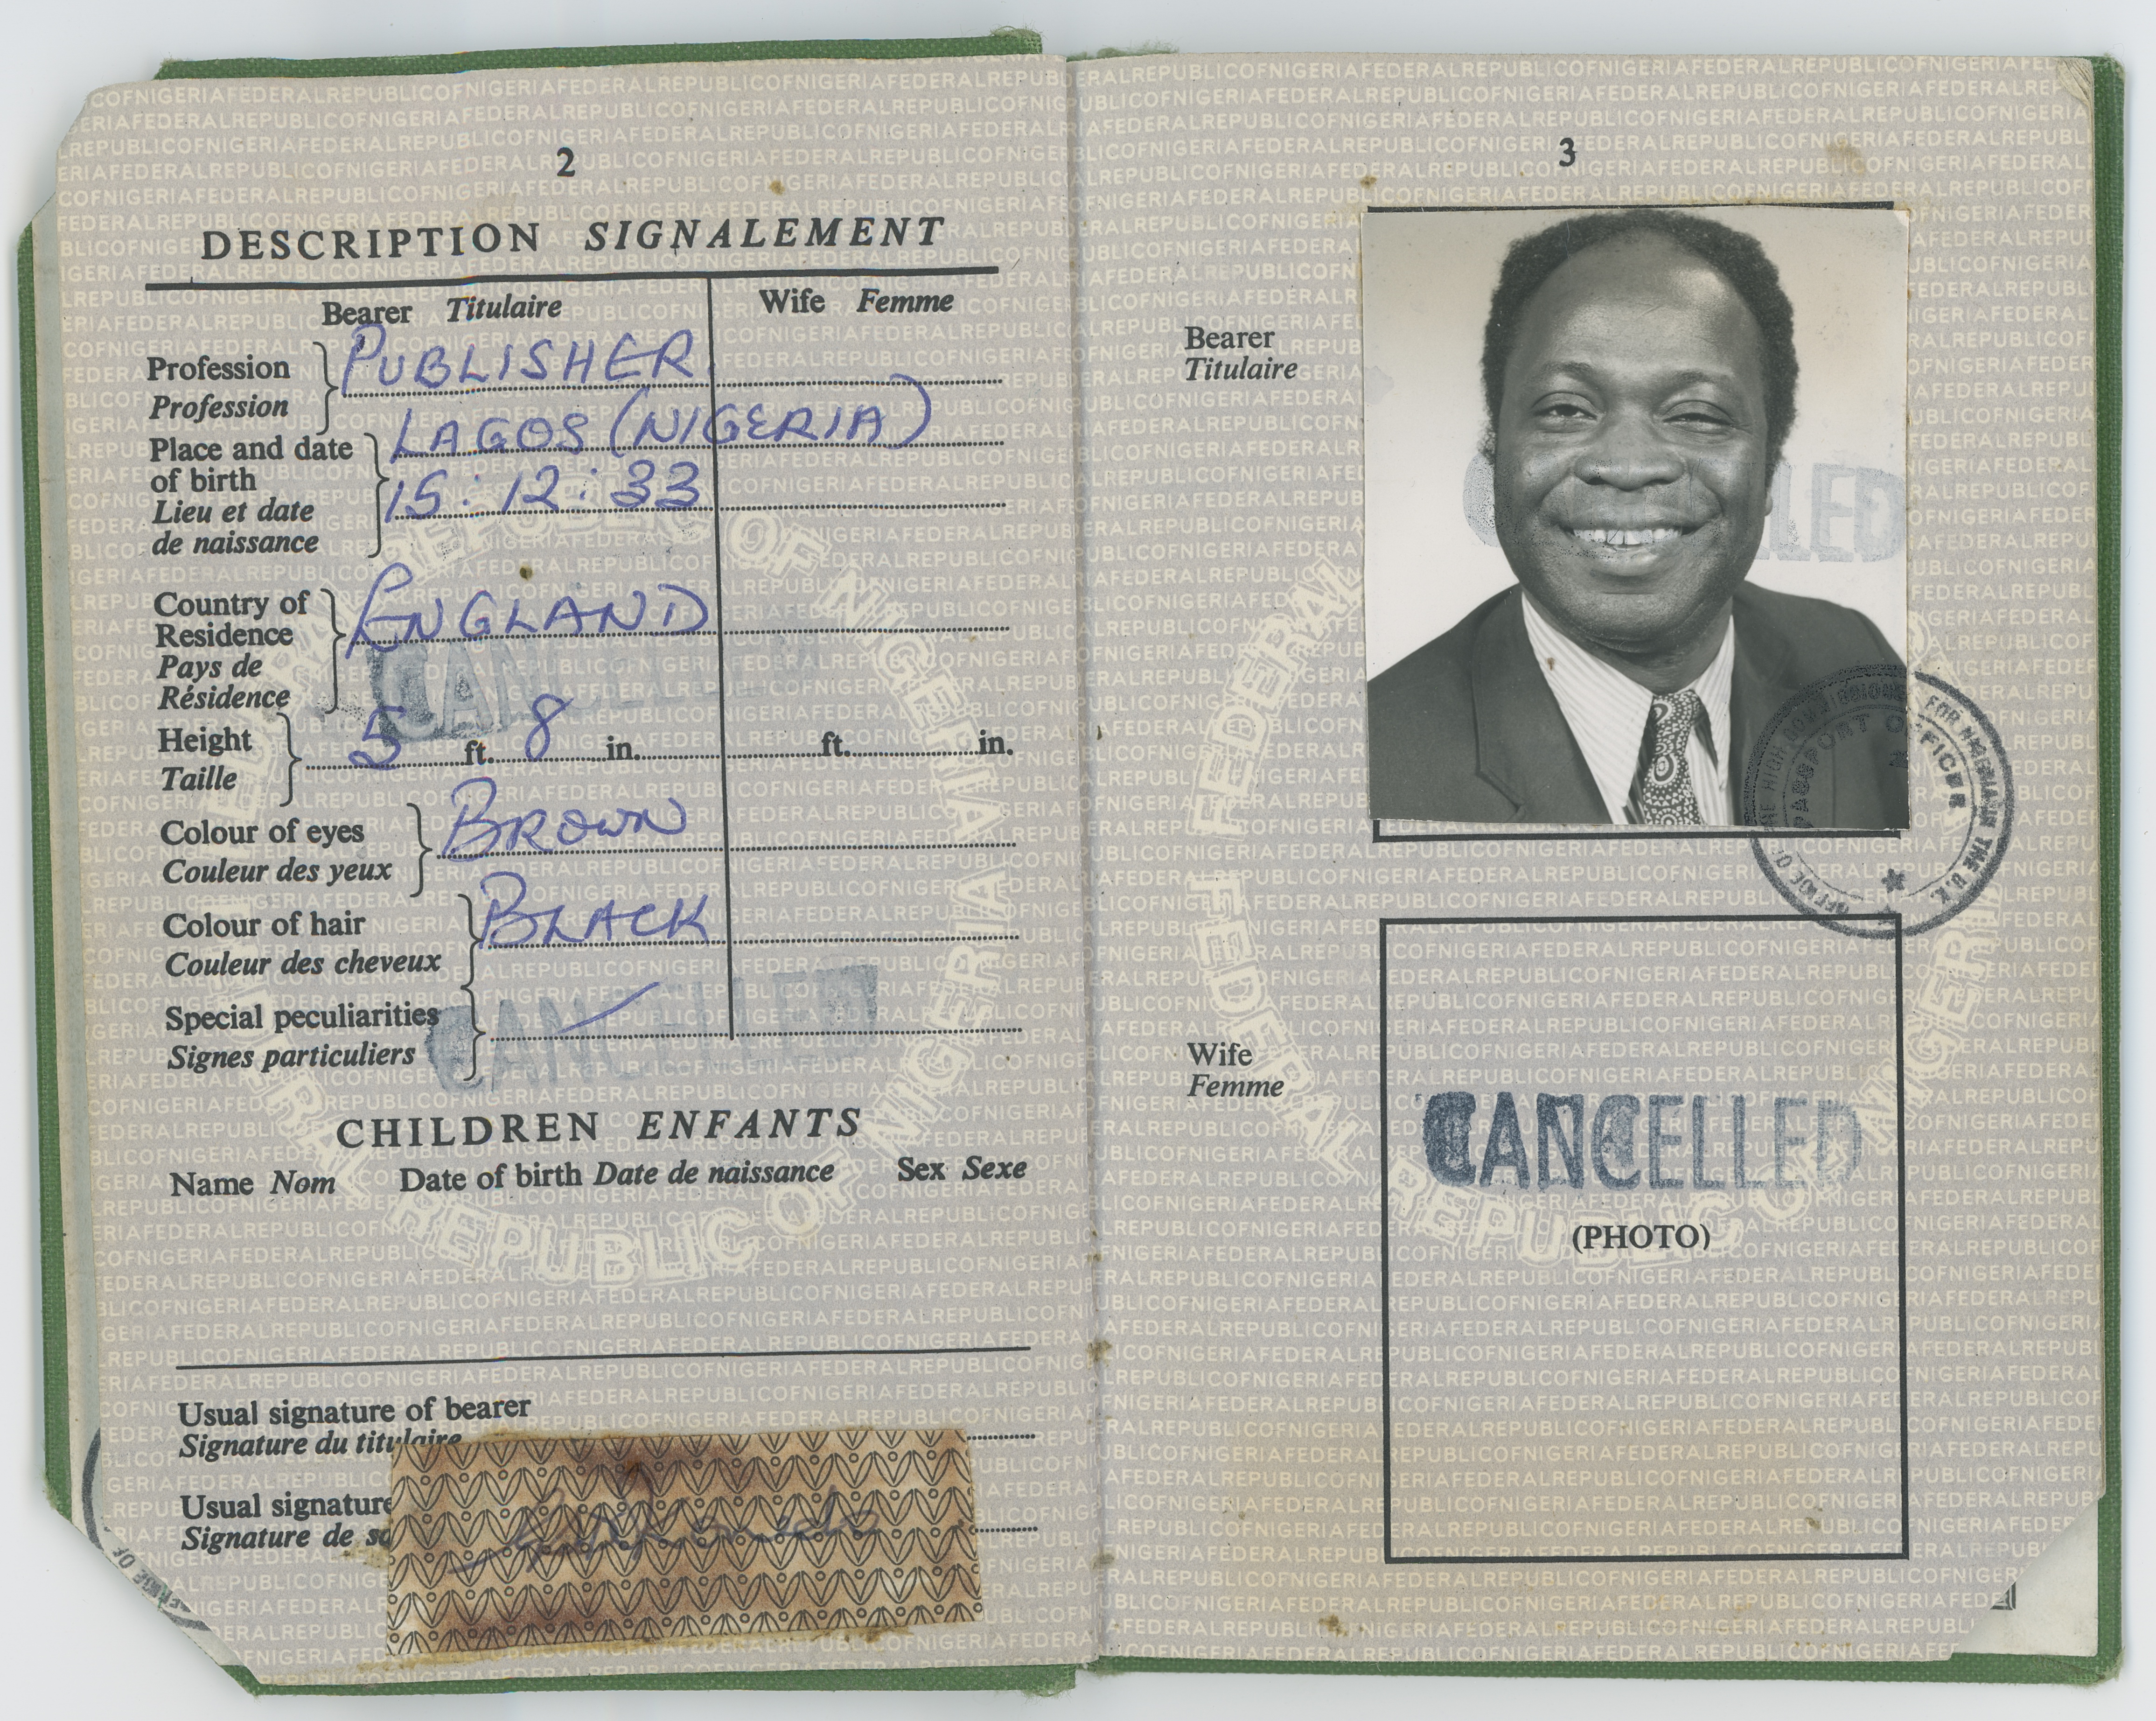 2
DESCRIPTION SIGNALEMENT
Bearer Titulaire
Wife Femme
Profession
Profession
PUBLISHER
Place and date
of birth
Lieu et date
de naissance
LAGOS (NIGERIA)
15:12:33
Country of
Residence
Pays de
Résidence
ENGLAND
CANCELLED
Height
Taille
5 ft. 8 in.
ft. in.
Colour of eyes
Couleur des yeux
BROWN
Colour of hair
Couleur des cheveux
BLACK
Special peculiarities
Signes particuliers
CANCELLED
CHILDREN ENFANTS
Name Nom Date of birth Date de naissance Sex Sexe
Usual signature of bearer
Signature du titulaire
Usual signature
Signature de
FEDERAL REPUBLIC OF NIGERIA
3
Bearer
Titulaire
CANCELLED
OFFICE OF THE HIGH COMMISSIONER FOR NIGERIA IN THE U.K.
PASSPORT OFFICER
Wife
Femme
CANCELLED
(PHOTO)
FEDERAL REPUBLIC OF NIGERIA